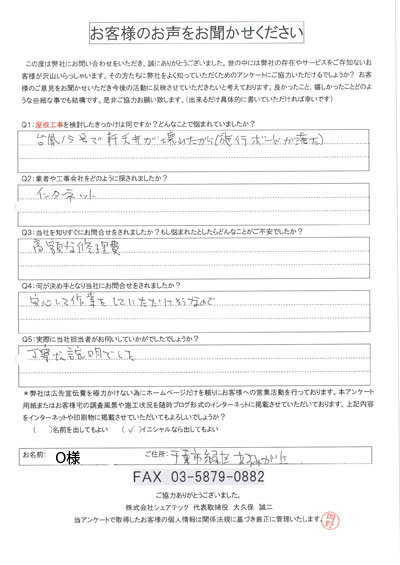 お客様のお声をお聞かせください
この度は弊社にお問い合わせをいただき、誠にありがとうございました。世の中には弊社の存在やサービスをご存知ないお
客様が沢山いらっしゃいます。その方たちに弊社をよく知っていただくためのアンケートにご協力いただけるでしょうか? お客
様のご意見をお聞かせいただき今後の活動に反映させていただきたいと考えております。良かったこと、嬉しかったことどのよ
うな些細な事でも結構です。是非ご協力お願い致します。(出来るだけ具体的に書いていただければ幸いです)
Q1:屋根工事を検討したきっかけは何ですか?どんなことで悩まれていましたか?
台風15号で軒天井が壊れたから(施行ボードが落た)
Q2:業者や工事会社をどのように探されましたか?
インターネット
Q3:当社を知りすぐにお問合せをされましたか?もし悩まれたとしたらどんなことがご不安でしたか?
高額な修理費
Q4:何が決め手となり当社にお問合せをされましたか?
安心して作業をしていただけそうなので
Q5:実際に当社担当者がお伺いしていかがでしたでしょうか?
丁寧な説明でした
*弊社は広告宣伝費を極力かけない為にホームページだけを頼りにお客様への営業活動を行っております。本アンケート
用紙またはお客様宅の調査風景や施工状況を随時ブログ形式のインターネットに掲載させていただいております。上記内容
をインターネットや印刷物に掲載させていただいてもよろしいでしょうか?
( )名前を出してもよい (✓)イニシャルなら出してもよい
お名前: O様 ご住所: 千葉市緑区
FAX 03-5879-0882
ご協力ありがとうございました。
株式会社シェアテック 代表取締役 大久保 誠二
当アンケートで取得したお客様の個人情報は関係法規に基づき厳正に管理いたします。